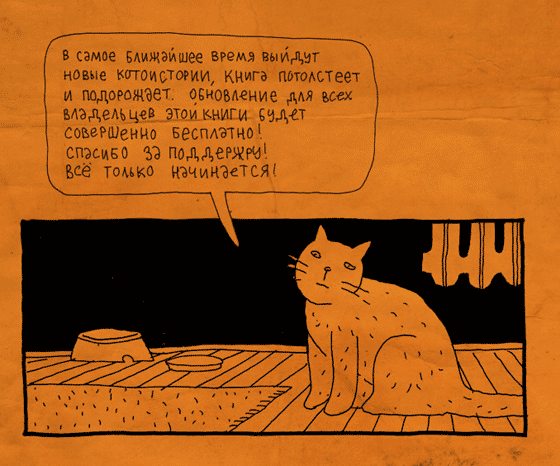 в самое ближайшее время выйдут
новые котоистории, книга потолстеет
и подорожает. обновление для всех
владельцев этой книги будет
совершенно бесплатно!
спасибо за поддержку!
всё только начинается!